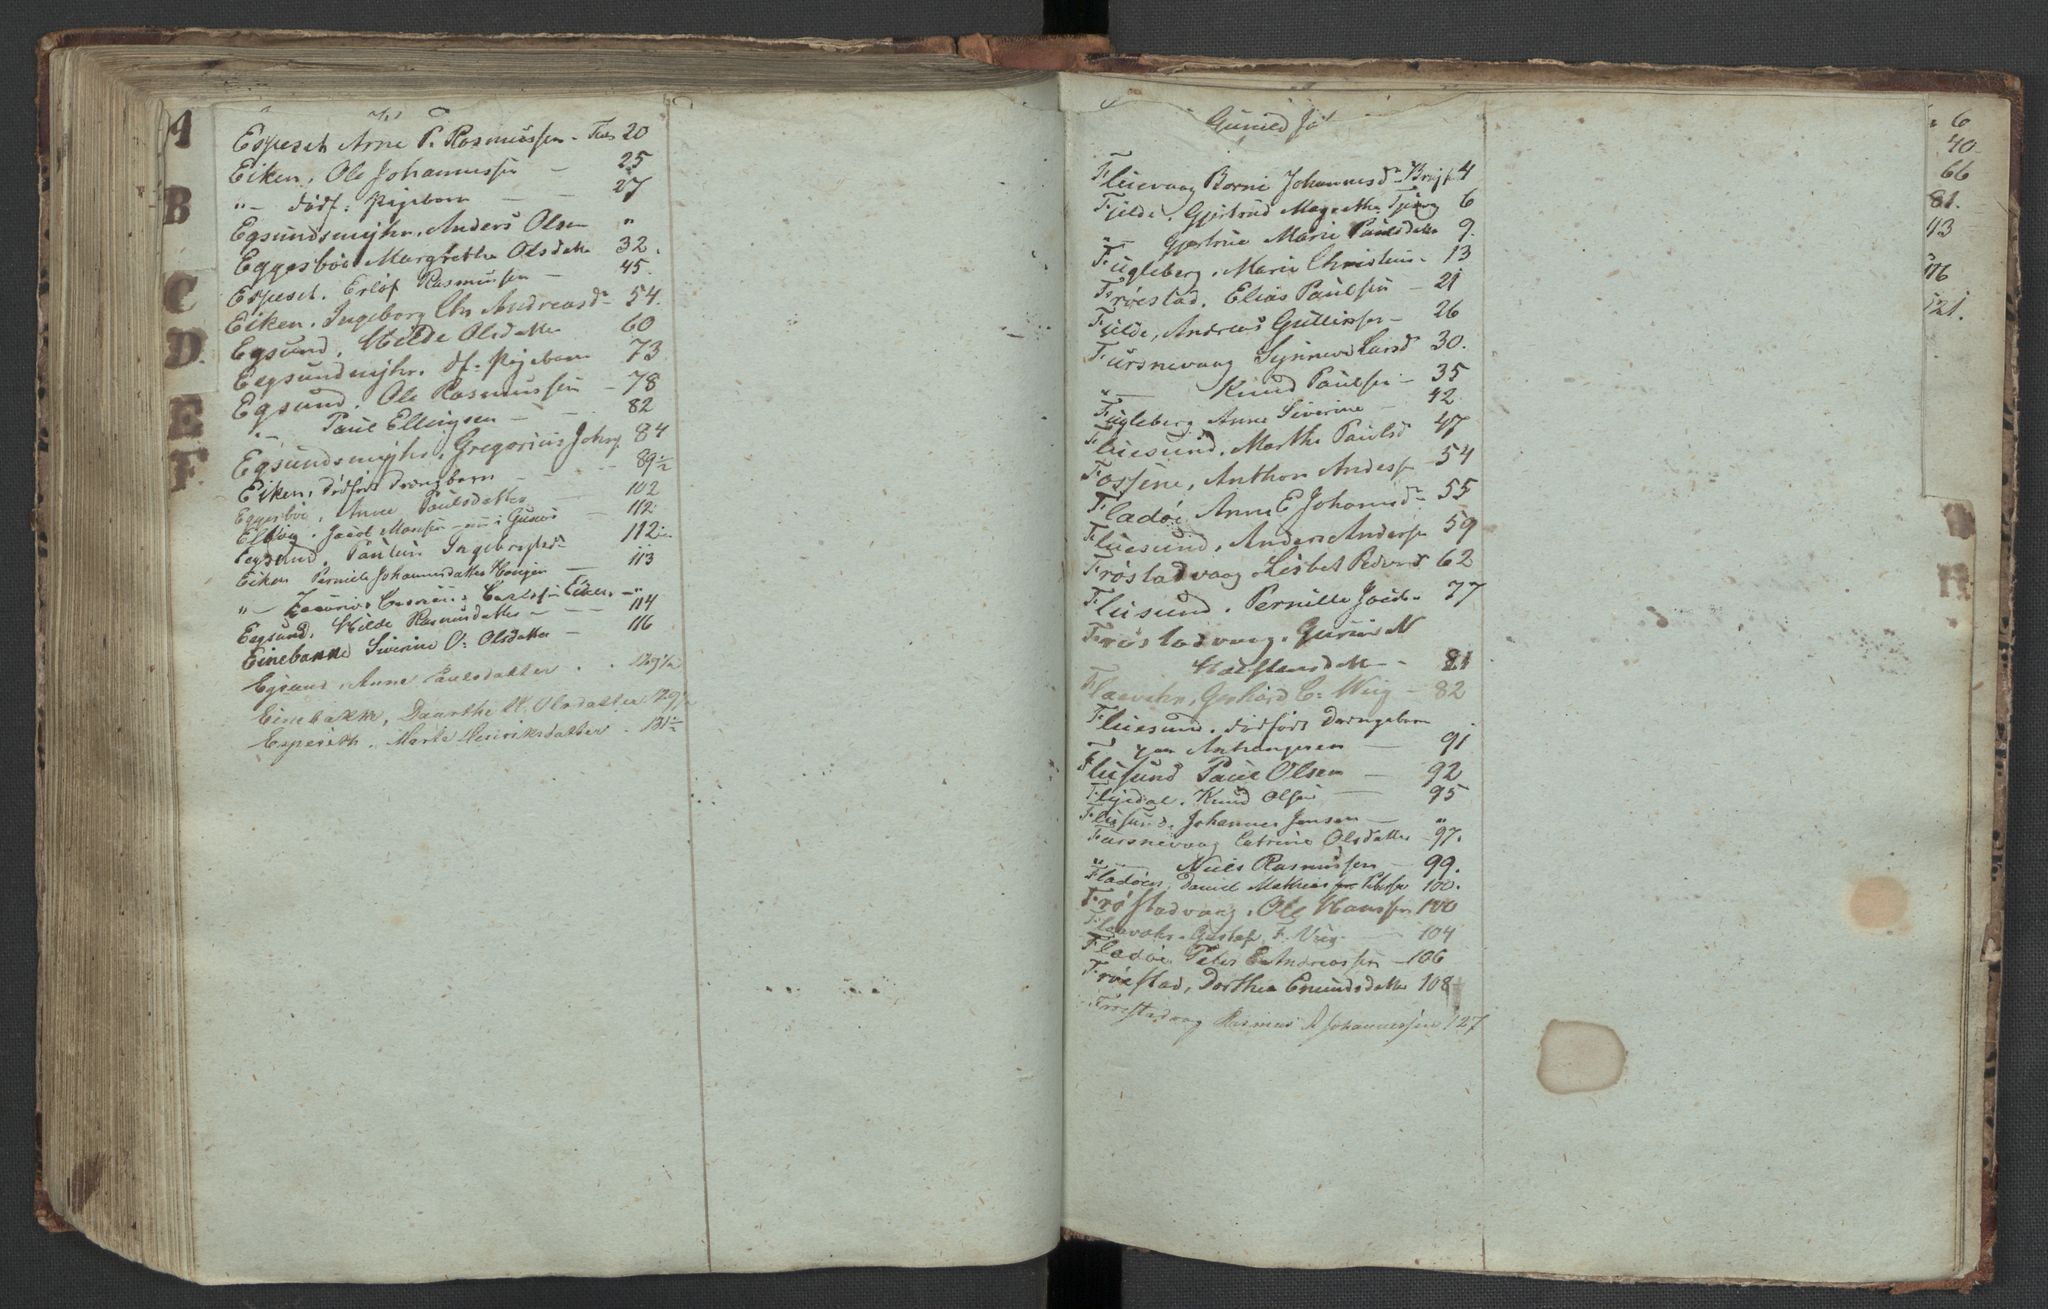 A
B
C
D
E
F
Espeset Arne P. Rasmussen - 20
Eiken, Ole Johannessen - 25
"- dödf: Pigebarn - - 27
Egsundsmyhr, Anders Olsen "
Eggesböe Margrethe Olsdatter 32.
Espeset, Erlof Rasmussen - 45.
Eiken, Ingeborg Chr Andreasd - 54.
Egsund, Hilde Olsdatter 60
Eegsundmyhr, df: Pigebarn 73
Egsund, Ole Rasmussen - 78
"- Paul Ellingsen - - 82
Egsundsmyhr, Gregorius Johs 84
Eiken, dödföd Drengbarn - - 89½
Eggesböe, Anne Paulsdatter - 102
Jacob Monsen - 112
Eegsund, Pauline Ingebrigtsd 112
Eiken Pernille Johannesdatter - 113
"- Zacarias - "
Eegsund, Hilde Rasmusdatter - - 114
Einebakke Sivrine O: Olsdatter - 116
Egsund, Anne Paulsdatter . . 129½
Einebakke, Daarthe M. Olsdatter 129½
Espeseth, Marte Henriksdatter . 131
Gunild
Fluevaag Borni Johannesd 4
Fjelde, Gjertrud Magrethe 6
"- Gjertrue Marie Paulsdatter 9.
Fugleberg, Marie Christens - 13
Fröestad, Elias Paulsen - 21
Fjelde, Andreas Gullissen - 26
Fursnevaag Synneve Larsd 30.
"- Knud Paulsen - 35
Fugleberg Anne Siverine - 42.
Fluesund, Marthe Paulsd 47
Fossene, Anthon Anders - 54
Fladöe Anne E Johannesd - 55
Fluesund, Anders Anders 59
Fröstadvaag Lisbet Pedersd 62
Fluesund, Pernille 77
Fröstadvaag, Gurine N
Halstensdatter - 81
Flaavehr, Gerhard C: Wiig - 82
Fluesund, dödfödt Drengebarn
- 91
Fluesund Paul Olsen - 92
Flyedal, Knud Olsen - 95
Fluesund, Johannes Jensen - "
Fursnevaag Catrine Olsdatter - 97.
"- Niels Rasmussen - 99.
Fladöen, Daniel Mathias 100.
Fröstadvaag, Ole Hanssen 100
Gustaf 104
Fladöe Peter E Andreassen - 106
Fröestad, Dorthea Emundsdatter 108
Fröestadvaag Rasmus A Johannessen 127
6
40
66
81.
121.